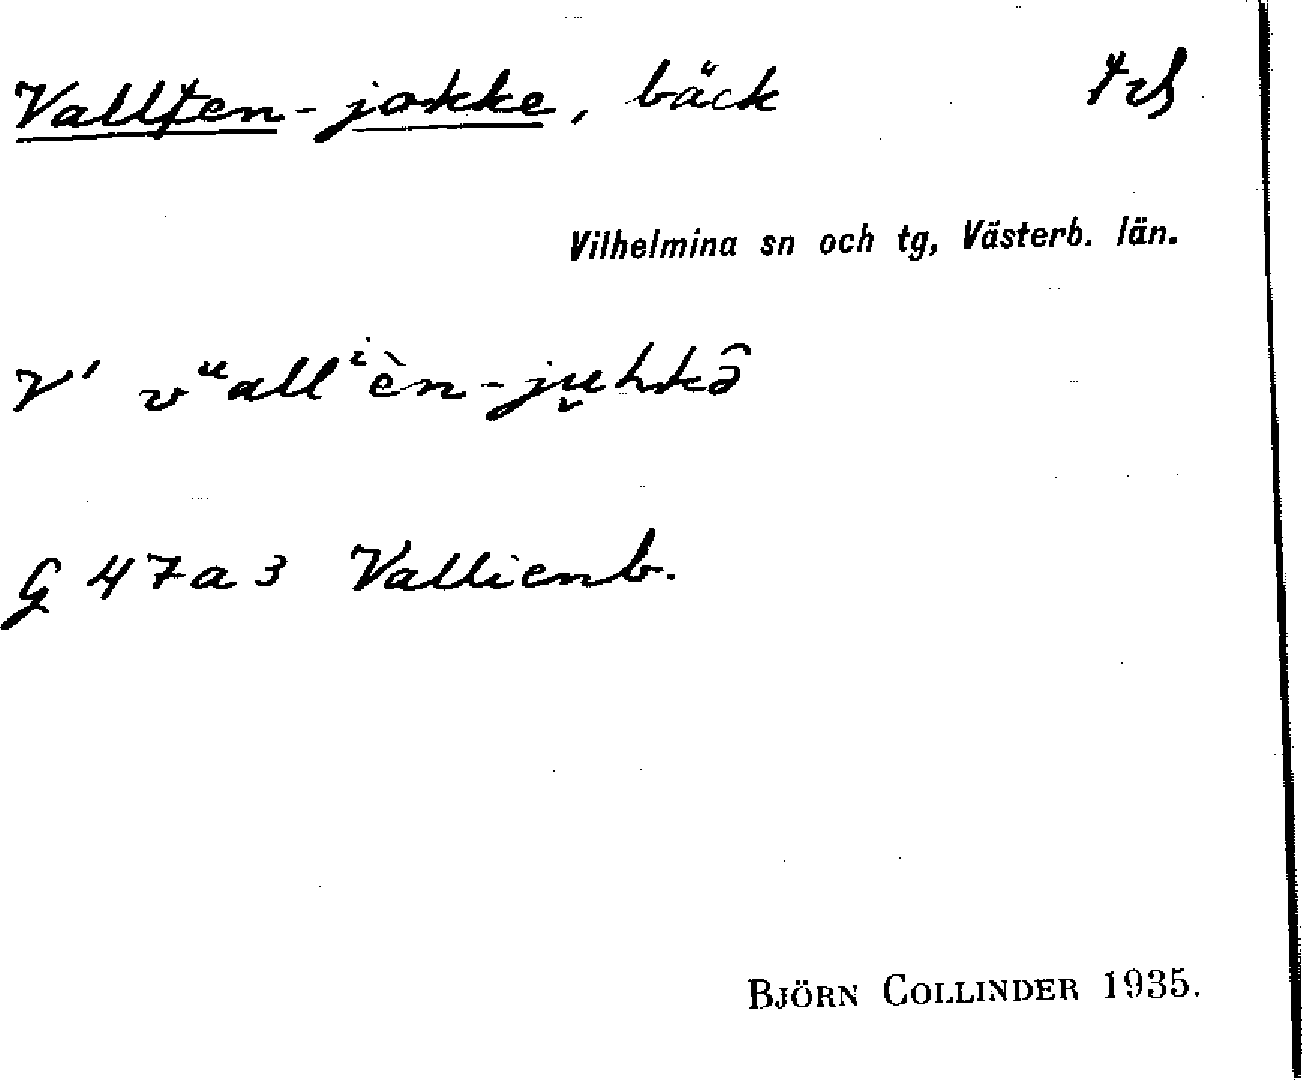 Vallten-jokke, bäck
Vilhelmina sn och tg, Västerb. län.
V' vᵘallⁱèn-ju̬hkə̂
G 47a3 Vallienb.
BJÖRN COLLINDER 1935.